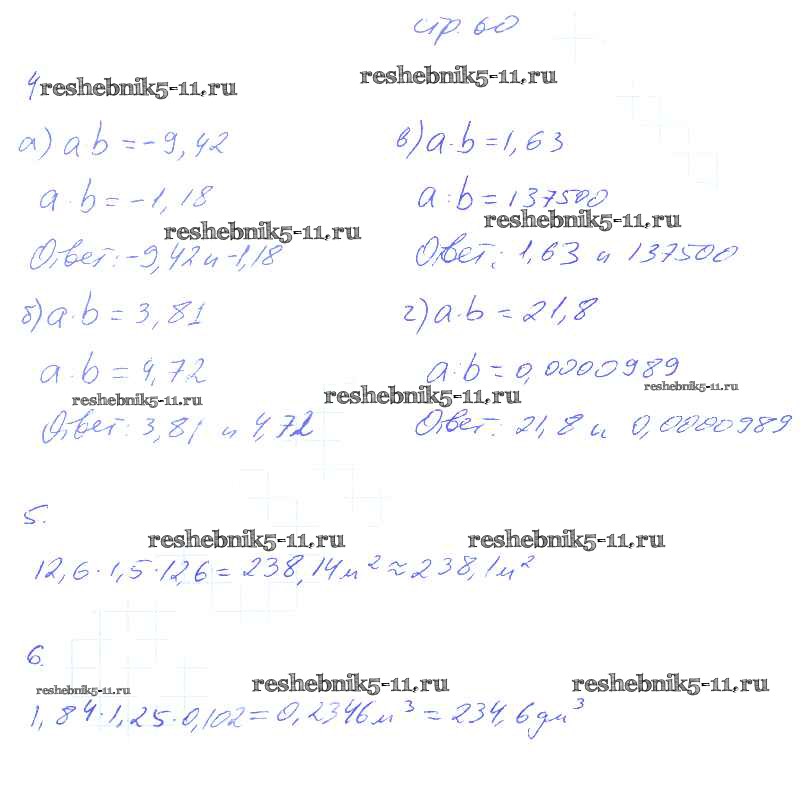 стр. 60
4
reshebnik5-11.ru
reshebnik5-11.ru
а) a b = -9,42
a · b = -1,18
reshebnik5-11.ru
Ответ: -9,42 и -1,18
б) a · b = 3,81
a · b = 4,72
reshebnik5-11.ru
Ответ: 3,81 и 4,72
в) a · b = 1,63
a : b = 137500
reshebnik5-11.ru
Ответ: 1,63 и 137500
г) a · b = 21,8
a : b = 0,0000989
reshebnik5-11.ru
reshebnik5-11.ru
Ответ: 21,8 и 0,0000989
5.
reshebnik5-11.ru
reshebnik5-11.ru
12,6 · 1,5 · 12,6 = 238,14 м² ≈ 238,1 м²
6.
reshebnik5-11.ru
reshebnik5-11.ru
reshebnik5-11.ru
1,84 · 1,25 · 0,102 = 0,2346 м³ = 234,6 дм³